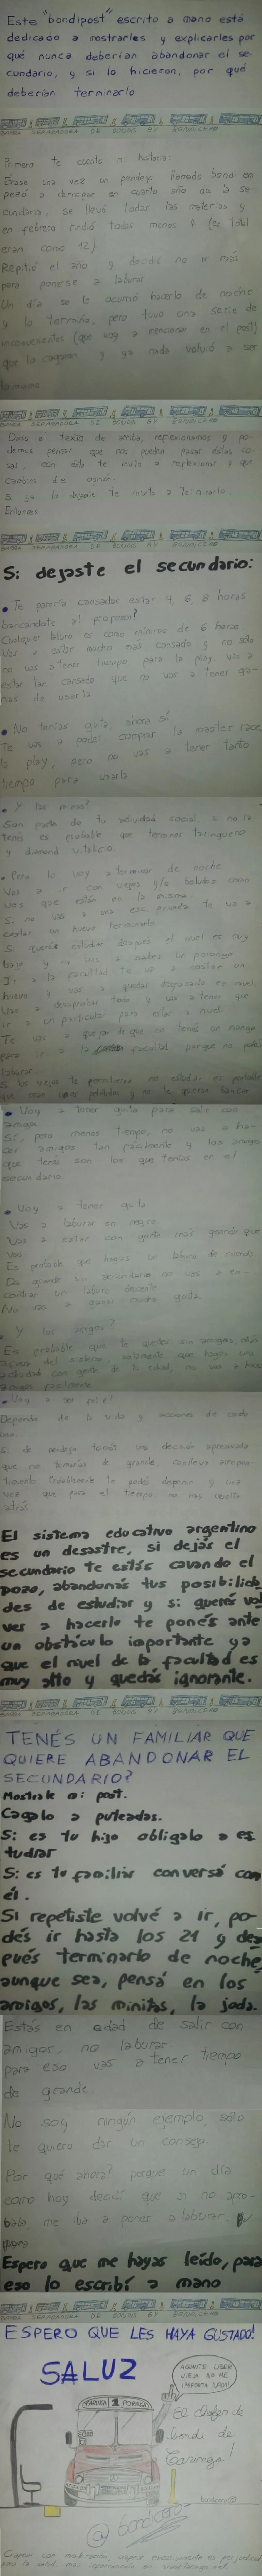 Este "bondipost" escrito a mano está
dedicado a mostrarles y explicarles por
qué nunca deberían abandonar el se-
cundario, y si lo hicieron, por qué
deberían terminarlo
SEPARADORA DE BONDIS BY BONDICERO
Primero te cuento mi historia:
Érase una vez un pendejo llamado bondi em-
pezó a derrapar en cuarto año de la se-
cundaria, se llevó todas las materias y
en febrero rindió todas menos 4 (en total
eran como 12)
Repitió el año y decidió no ir más
para ponerse a laburar
Un día se le ocurrió hacerlo de noche
y lo terminó, pero tuvo una serie de
inconvenientes (que voy a mencionar en el post)
que lo cagaron y ya nada volvió a ser
lo mismo
SEPARADORA DE BONDIS BY BONDICERO
Dado el texto de arriba, reflexionamos y po-
demos pensar que nos pueden pasar estas co-
sas, con esto te invito a reflexionar y que
cambies de opinión.
Si ya lo dejaste te invito a terminarlo
Entonces
SEPARADORA DE BONDIS BY BONDICERO
Si dejaste el secundario:
• Te parecía cansador estar 4, 6, 8 horas
bancándote al profesor?
Cualquier laburo es como mínimo de 6 horas
Vas a estar mucho más cansado y no sólo
no vas a tener tiempo para la play, vas a
estar tan cansado que no vas a tener ga-
nas de usarla
• No tenías guita, ahora sí
Te vas a poder comprar la master race,
la play, pero no vas a tener tanto
tiempo para usarla
• Y las minas?
Son parte de tu actividad social si no la
tenés es probable que termines taringuero
y diamond vitalicio
• Pero lo voy a terminar de noche
Vas a ir con viejos y/o boludos como
vos que están en la misma.
Si no vas a una privada te va a
costar un huevo terminarlo
Si querés estudiar después el nivel es muy
bajo y no vas a saber un porongo
Ir a la facultad te va a costar un
huevo y vas a quedar rezagado en nivel
Vas a desaprobar todo y vas a tener que
ir a un particular para estar a nivel
Te vas a quejar de que no tenés un mango
para ir a la facultad porque no podés
laburar
• Voy a tener guita para salir con
amigos
Sí, pero menos tiempo, no vas a ha-
cer amigos tan fácilmente y los amigos
que tenés son los que tenías en el
secundario
• Voy a tener guita
Vas a laburar en negro
Vas a estar con gente más grande que
vos
Es probable que hagas un laburo de mierda
De grande sin secundario no vas a en-
contrar un laburo decente
No vas a ganar mucha guita
• Y los amigos?
Es probable que te quedes sin amigos, estás
afuera del sistema solamente que hagas una
actividad con gente de tu edad, no vas a hacer
amigos fácilmente
Depende de la vida y acciones de cada
uno
Si de pendejo tomás una decisión apresurada
que no tomarías de grande, conlleva
vez que pasa el tiempo no hay vuelta
atrás
El sistema educativo argentino
es un desastre, si dejás el
secundario te estás cavando el
pozo, abandonás tus posibilida
des de estudiar y si querés vol
ver a hacerlo te ponés ante
un obstáculo importante ya
que el nivel de la facultad es
muy alto y quedás ignorante.
SEPARADORA DE BONDIS BY BONDICERO
TENÉS UN FAMILIAR QUE
QUIERE ABANDONAR EL
SECUNDARIO?
Mostrale mi post.
Cagalo a puteadas.
Si es tu hijo obligalo a es
tudiar
Si es tu familiar conversá con
él.
Si repetiste volvé a ir, po-
dés ir hasta los 21 y des
pués terminarlo de noche
aunque sea, pensá en los
amigos, las minitas, la joda.
Estás en edad de salir con
amigos, no laburar
para eso vas a tener tiempo
de grande.
No soy ningún ejemplo, sólo
te quiero dar un consejo.
Por qué ahora? porque un día
como hoy decidí que si no apro-
baba, me iba a poner a laburar.
Espero que me hayas leído, para
eso lo escribí a mano
SEPARADORA DE BONDIS BY BONDICERO
ESPERO QUE LES HAYA GUSTADO!
SALUZ
TARINGA 1 PORINGA
AGUANTE UBER
VIEJA NO ME
IMPORTA NADA!
El chofer de
bondi de
Taringa!
bondicero
@bondicero